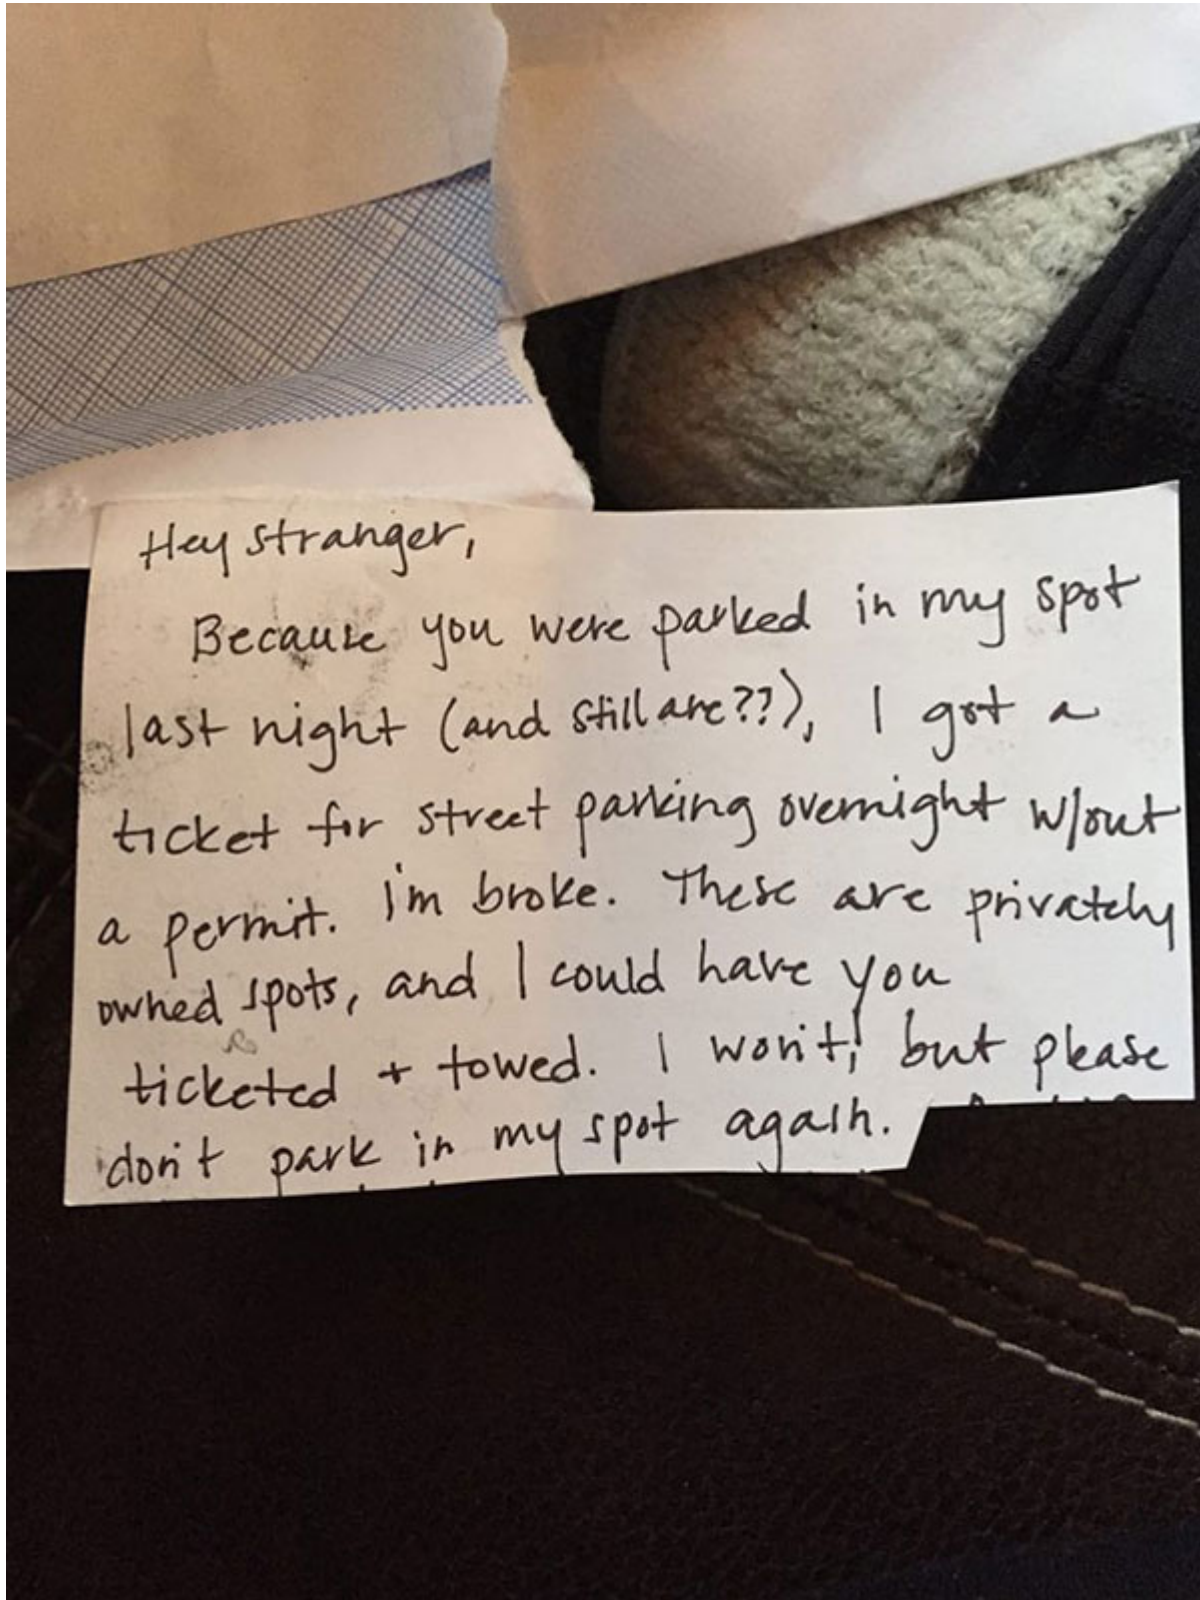 Hey stranger,
Because you were parked in my spot
last night (and still are??), I got a
ticket for street parking overnight w/out
a permit. I'm broke. These are privately
owned spots, and I could have you
ticketed + towed. I won't, but please
don't park in my spot again.